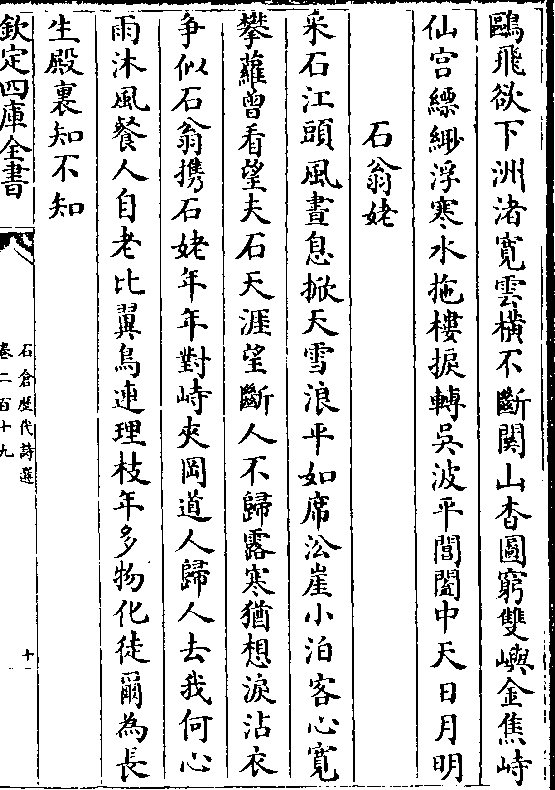 鷗飛欲下洲渚寛雲横不斷闗山杳圖窮雙嶼金焦峙
仙宫縹緲浮寒水拖樓捩轉吳波平閶闔中天日月明
石翁姥
采石江頭風晝息掀天雪浪平如席㳂崖小泊客心寛
攀蘿曽看望夫石天涯望斷人不歸露寒猶想淚沾衣
争似石翁携石姥年年對峙夾岡道人歸人去我何心
雨沐風餐人自老比翼鳥連理枝年多物化徒爾為長
生殿裏知不知
欽定四庫全書
石倉歴代詩選
卷二百十九
十一